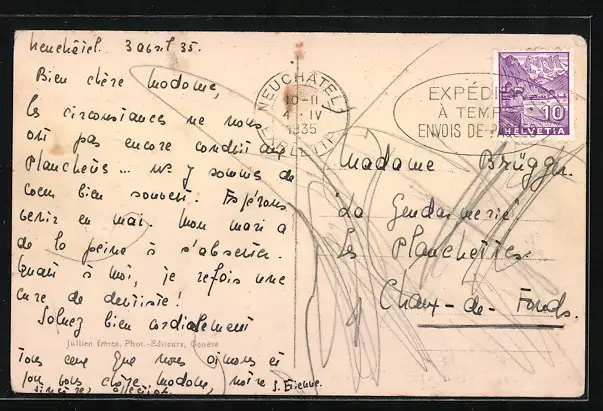 Neuchâtel. 3 abril 35.
Bien chère Madame,
les circonstances ne nous
ont pas encore conduit aux
Planchettes... nous y sommes de
coeur bien souvent. Espérons
venir en mai. Mon mari a
de la peine à s'absenter.
Quant à moi, je refais une
cure de dentiste!
Saluez bien cordialement
Jullien frères, Phot.-Editeurs, Genève
Tous ceux que nous aimons et
vous chère Madame, notre
sincère affection. S. Etienne.
NEUCHÂTEL
10-11
4·IV
1935
EXPÉDIER
À TEMPS
ENVOIS DE
10
HELVETIA
Madame Brügger.
La Gendarmerie
Les Planchettes
Chaux-de-Fonds.